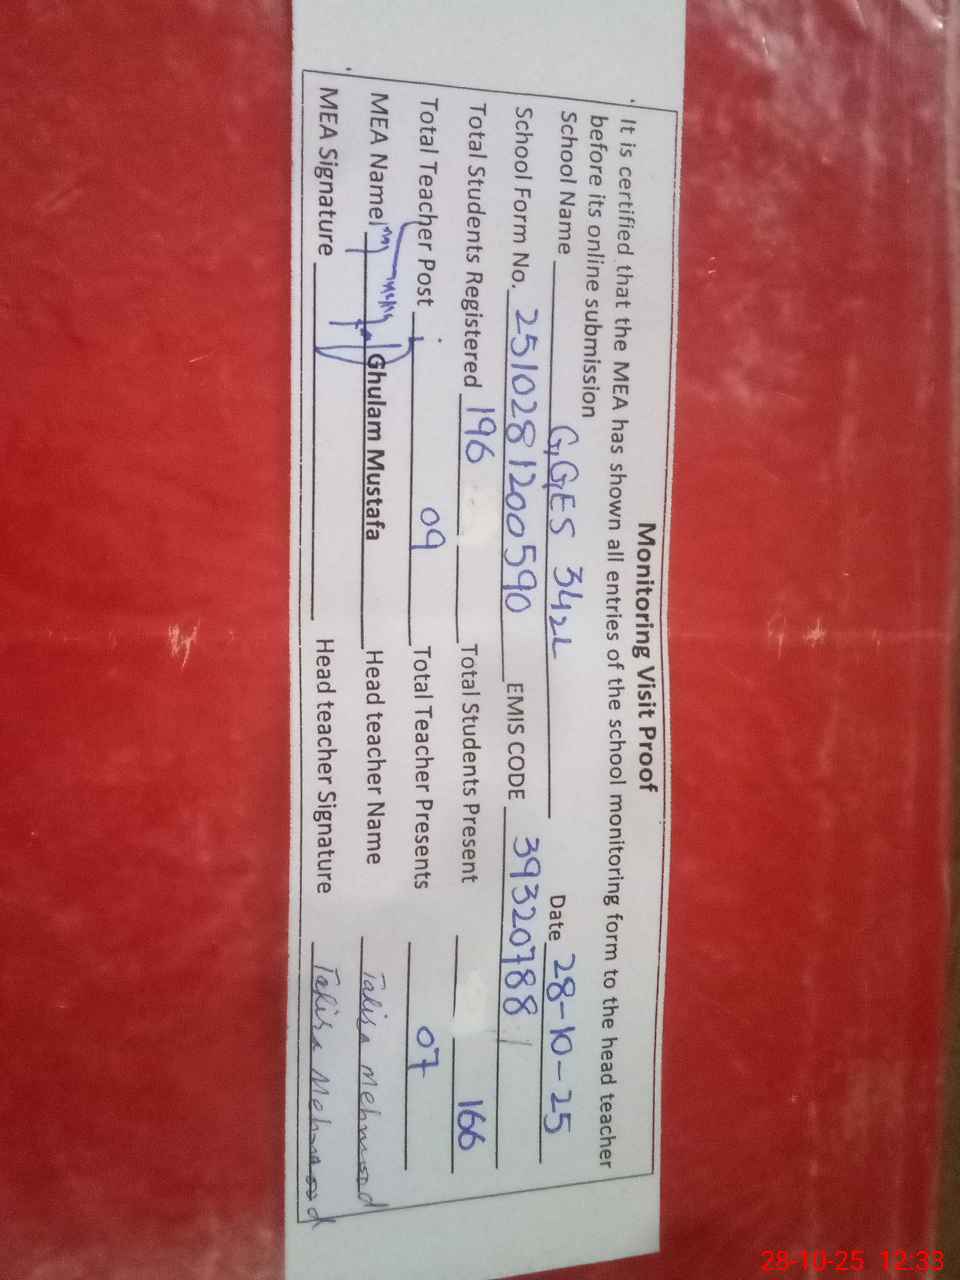 Monitoring Visit Proof
It is certified that the MEA has shown all entries of the school monitoring form to the head teacher
before its online submission
School Name G,GES 342L Date 28-10-25
School Form No. 251028 1200590 EMIS CODE 39320788
Total Students Registered 196 Total Students Present 166
Total Teacher Post 09 Total Teacher Presents 07
MEA Name Ghulam Mustafa Head teacher Name Mehmood
MEA Signature Head teacher Signature Mehmood
28-10-25 12:33